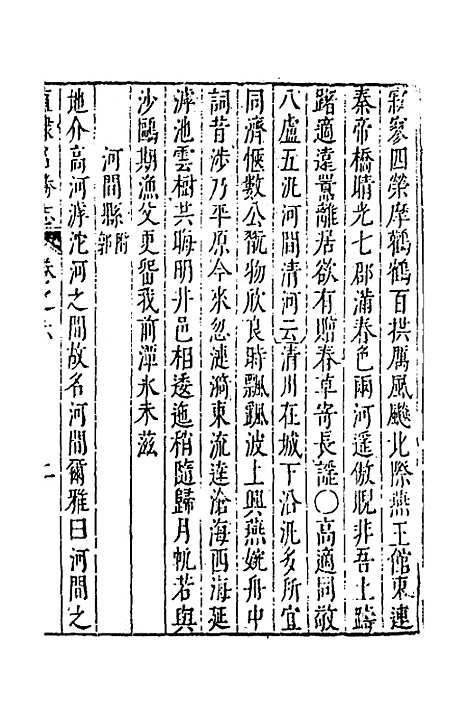 寂寥四榮摩鸛鶴百拱厲風飈北際燕王館東連
秦帝橋晴光七郡滿春色兩河遥傲睨非吾土躊
躇適遠囂離居欲有贈春草寄長謡〇高適同敬
八盧五汎河間清河云清川在城下沿汎多所宜
同濟愜數公翫物欣良時飄飄波上興燕婉舟中
詞昔涉乃平原今來忽漣漪東流達滄海西海延
滹池雲樹共晦明井邑相逶迤稍隨歸月帆若與
沙鷗期漁父更留我前潭水未兹
河間縣附郭
地介高河滹沱河之間故名河間爾雅曰河間之
直隸名勝志 卷之六 二